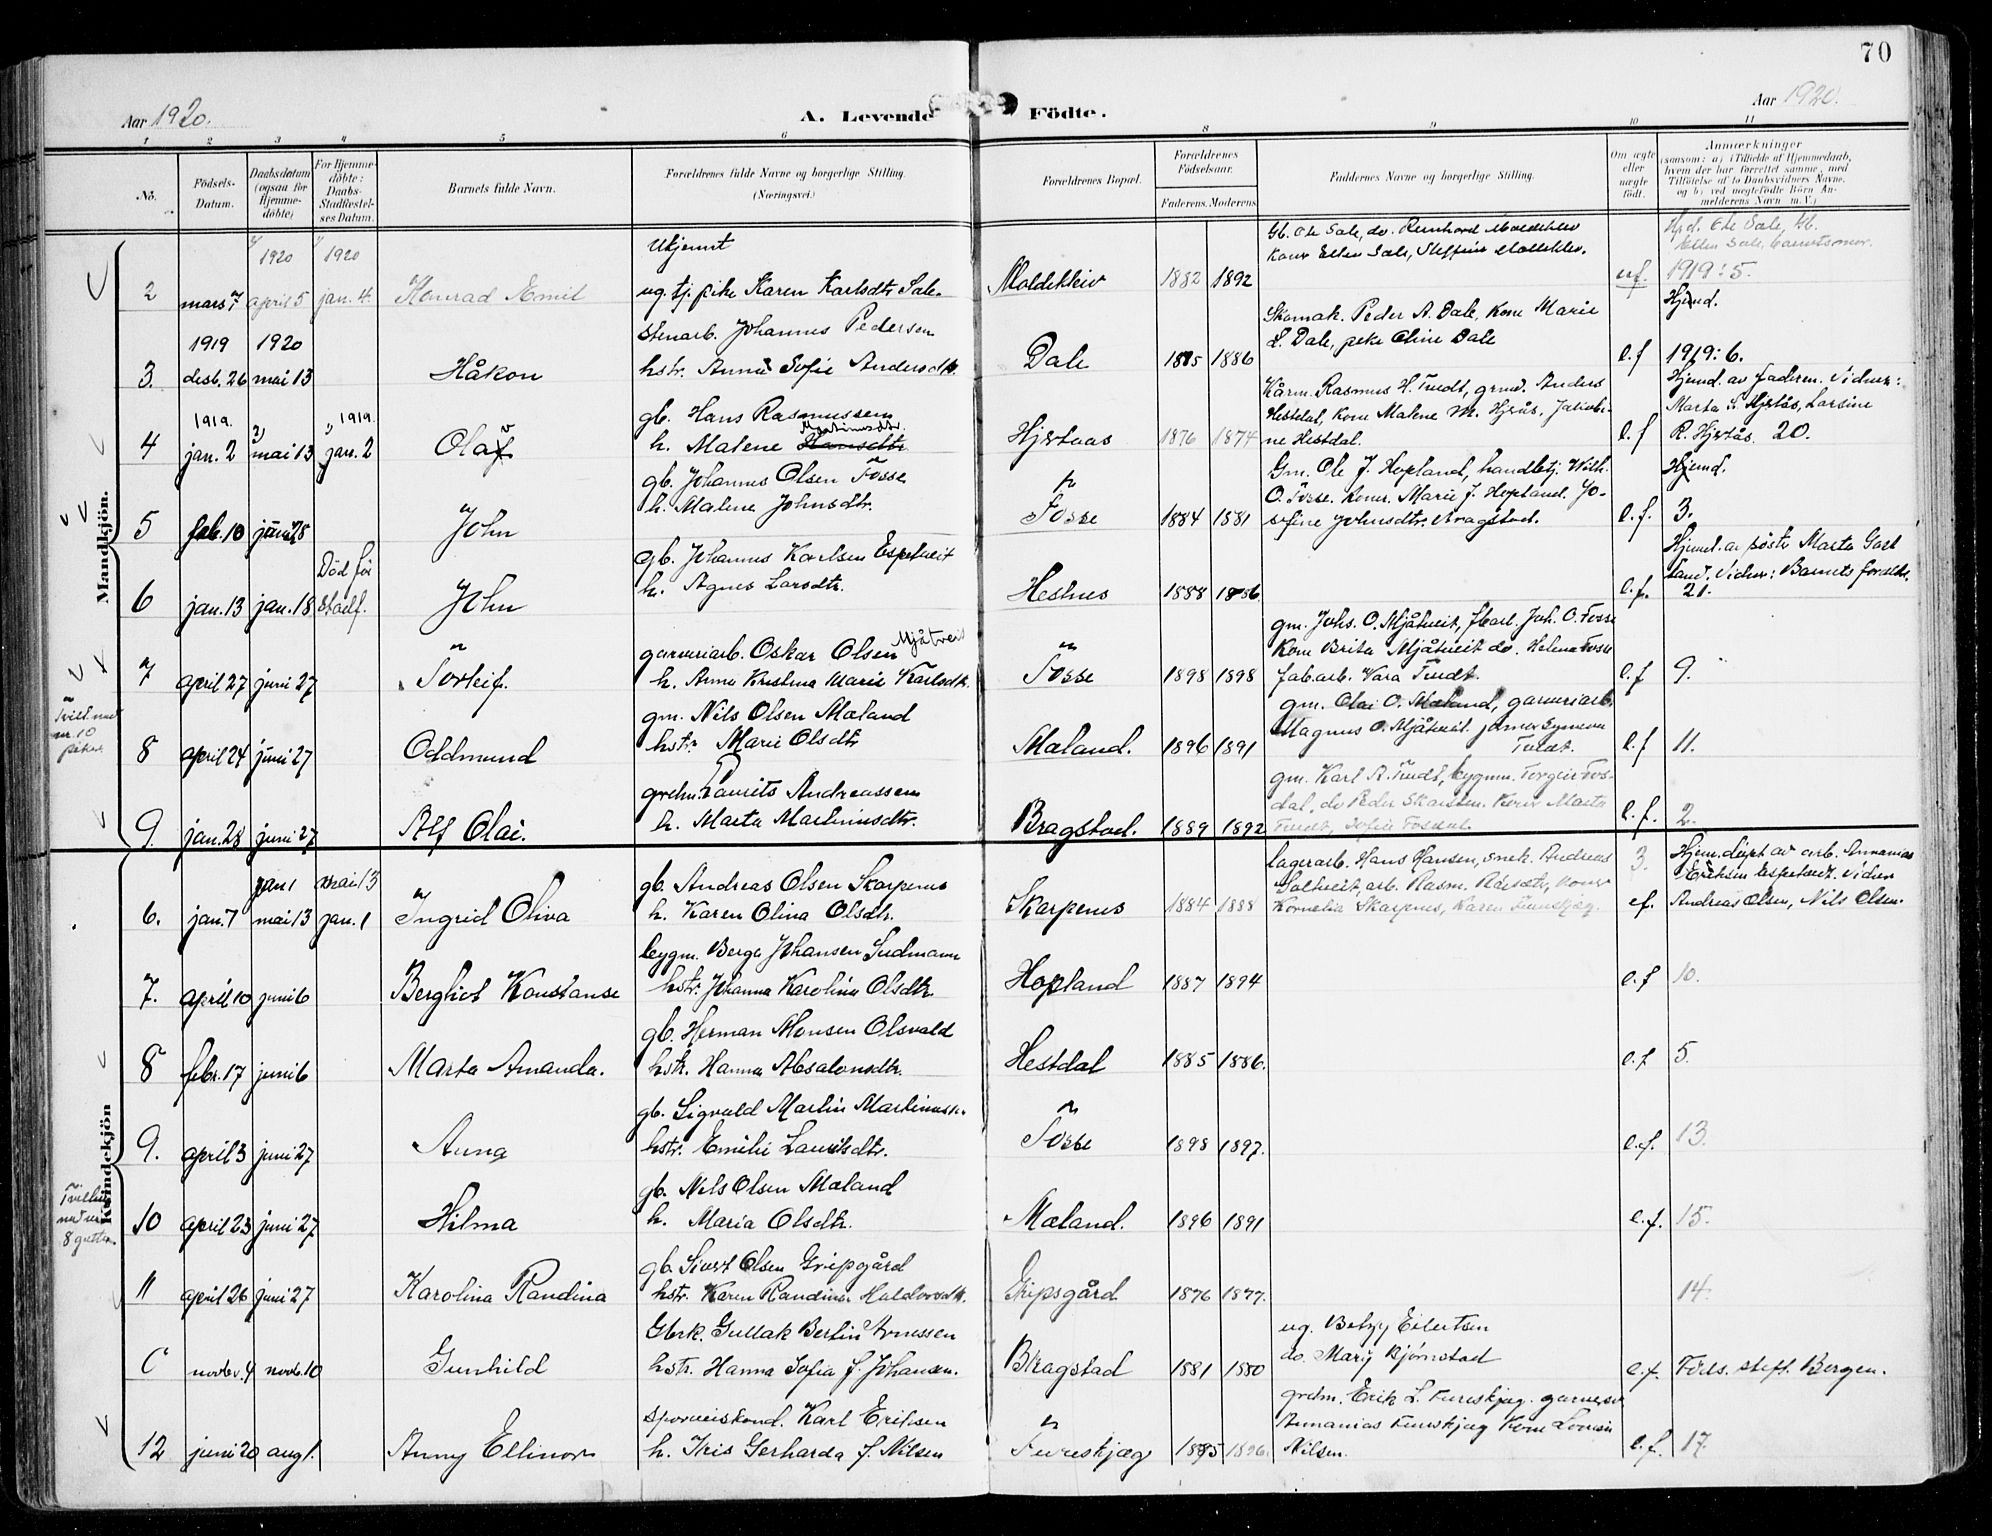 70
Aar 1920.
A. Levende Födte.
Aar 1920.
1 2 3 4 5 6 8 9 10 11
No.
Födsels-Datum.
Daabsdatum (ogsaa for Hjemmedöbte;
For Hjemmedöbte: Daabs-Stadfestelses Datum.
Barnets fulde Navn.
Forældrenes fulde Navne og borgerlige Stilling.
(Næringsvei.)
Forældrenes Bopæl.
Forældrenes Födselsaar.
Faderens. Moderens
Faddernes Navne og borgerlige Stilling.
Om ægte eller uægte födt.
Anmærkninger
(saasom: a) i Tilfælde af Hjemmedaab, hvem der har forrettet samme, med Tilföielse af to Daabsvidners Navne. og b) ved uægtefödte Börn Anmelderens Navn m.V.;
Mandkjön.
1920 1920
2 mars 7 april 5 jan. 4. Konrad Emil
Ukjennt
ug. tj. pike Karen Karlsdtr Sale.
Moldekleiv 1882 1892
Gb. Ole Sale, do. Reinhard Moldeklev
Kone Ellen Sale, Steffine Moldeklev.
uf.
Hjd. Ole Sale, Gb.
Ellen Sale, barnets mor.
1919: 5.
1919 1920
3. desb. 26 mai 13 Håkon
Stenarb. Johannes Pedersen
hstr. Anna Sofie Andersdtr.
Dale 1885 1886
Skomak. Peder A. Dale, Kone Marie
L. Dale, pike Oline Dale
e.f
Hjemd.
1919: 6.
1919. 1919
4 jan. 2 mai 13 jan. 2 Olav
gb. Hans Rasmussen
h. Malene Hansdtr Martinusdtr.
Hjertaas 1876 1874
Kårm. Rasmus H. Tvedt, grmd. Anders
Hestdal, kone Malene M. Hjrås, Jakobi-
ne Hestdal.
e.f
Hjemd. av faderen. Vidner:
Marta S. Hjrtås, Larsine
R. Hjrtås. 20.
5 feb. 10 juni 28 John
gb. Johannes Olsen Fosse
h. Malene Johnsdtr.
Fosse 1884 1881
Gm. Ole J. Hopland, handletj. Wilh.
O. Fosse. Koner. Marie J. Hopland. Jo-
sefine Johnsdtr. Bragstad.
e.f.
Hjemd.
3.
6 jan. 13 jan. 18 Död för Stadf. John
gb. Johannes Karlsen Espetveit
h. Agnes Larsdtr.
Hesnes 1888 1886
e.f.
Hjemd. av søstr Marta Gast
land. Vidner: Barnets foreldre.
21.
7 april 27 juni 27 Torleif.
garveriarb. Oskar Olsen Mjåtveit
h. Anna Kristina Marie Karlsdtr.
Fosse 1898 1898
gm. Johs. O. Mjåtveit, fbarb. Joh. O. Fosse
Kone Brita Mjåtveit do. Helena Fosse
fab.arb. Vara Tvedt.
e.f 9.
Tvill. med
nr. 10
piker
8 april 24 juni 27 Oddmund
gm. Nils Olsen Mæland
hstr. Marie Olsdtr
Mæland. 1896 1891
gm. Olai O. Mæland, garveriarb.
Magnus O. Mjåtveit
Tvedt.
e.f 11.
9. jan. 28 juni 27 Alf Olai.
grdm. Laurits Andreassen
h. Marta Martinusdtr.
Bragstad. 1889 1892
gm. Karl A. Tvedt, bygmn. Torgeir Fos-
dal, do Peder Skarsten. Koner Marta
Tvedt, Sofie Fosdal.
e.f. 2.
Kvindekjön
jan 1 mai 13
6. jan. 7 mai 13 jan. 1 Ingrid Oliva
gb. Andreas Olsen Skarpenes
h. Karen Olina Olsdtr.
Skarpenes 1884 1888
lagerarb. Hans Hansen, snek. Andreas
Soltveit, arb. Rasm. Rårsætr, Koner
Kornelia Skarpnes, Karen Fureskjæg.
3.
ef.
Hjem. døpt av arb. Annanias
Eriksen Espetveit. Vidner
Andreas Olsen, Nils Olsen.
7. april 10 juni 6 Bergliot Konstanse
bygm. Berge Johansen Sudmann
hstr. Johanna Karolina Olsdtr.
Hopland 1887 1894
e.f 10.
8 febr. 17 juni 6 Marta Amanda.
gb. Herman Monsen Olsvold
hstr. Hanna Absalonsdtr.
Hestdal 1885 1886.
e.f 5.
9. april 3 juni 27 Anna
gb. Sigvald Martin Martinusn.
hstr. Emilie Lauritsdtr.
Fosse 1898 1897.
e.f. 13.
Tvilling
med nr.
8 gutten
10 april 23 juni 27 Hilma
gb. Nils Olsen Mæland
h. Maria Olsdtr.
Mæland. 1896 1891
e.f. 15.
11 april 26 juni 27 Karolina Randina
gb. Sivert Olsen Gripsgård
hstr. Karen Randina Haldorsdtr.
Gripsgård 1876 1877.
14.
C novbr. 4 novb. 10 Gunhild
Gbrk. Gullak Bertin Arnessen
hstr. Hanna Sofia f. Johansen.
Bragstad 1881 1880
ug. Betzy Eilertsen
do. Mary Bjørnstad
e.f. Föds. stift. Bergen.
12 juni 20 aug 1. Anny Ellinor
Sporveiskond. Karl Eriksen
h. Iris Gerharda f. Nilsen
Fureskjæg 1895 1896.
grdm. Erik L. Fureskjæg. garver
Annanias Fureskjæg Kone Lovise
Nilsen.
e.f. 17.